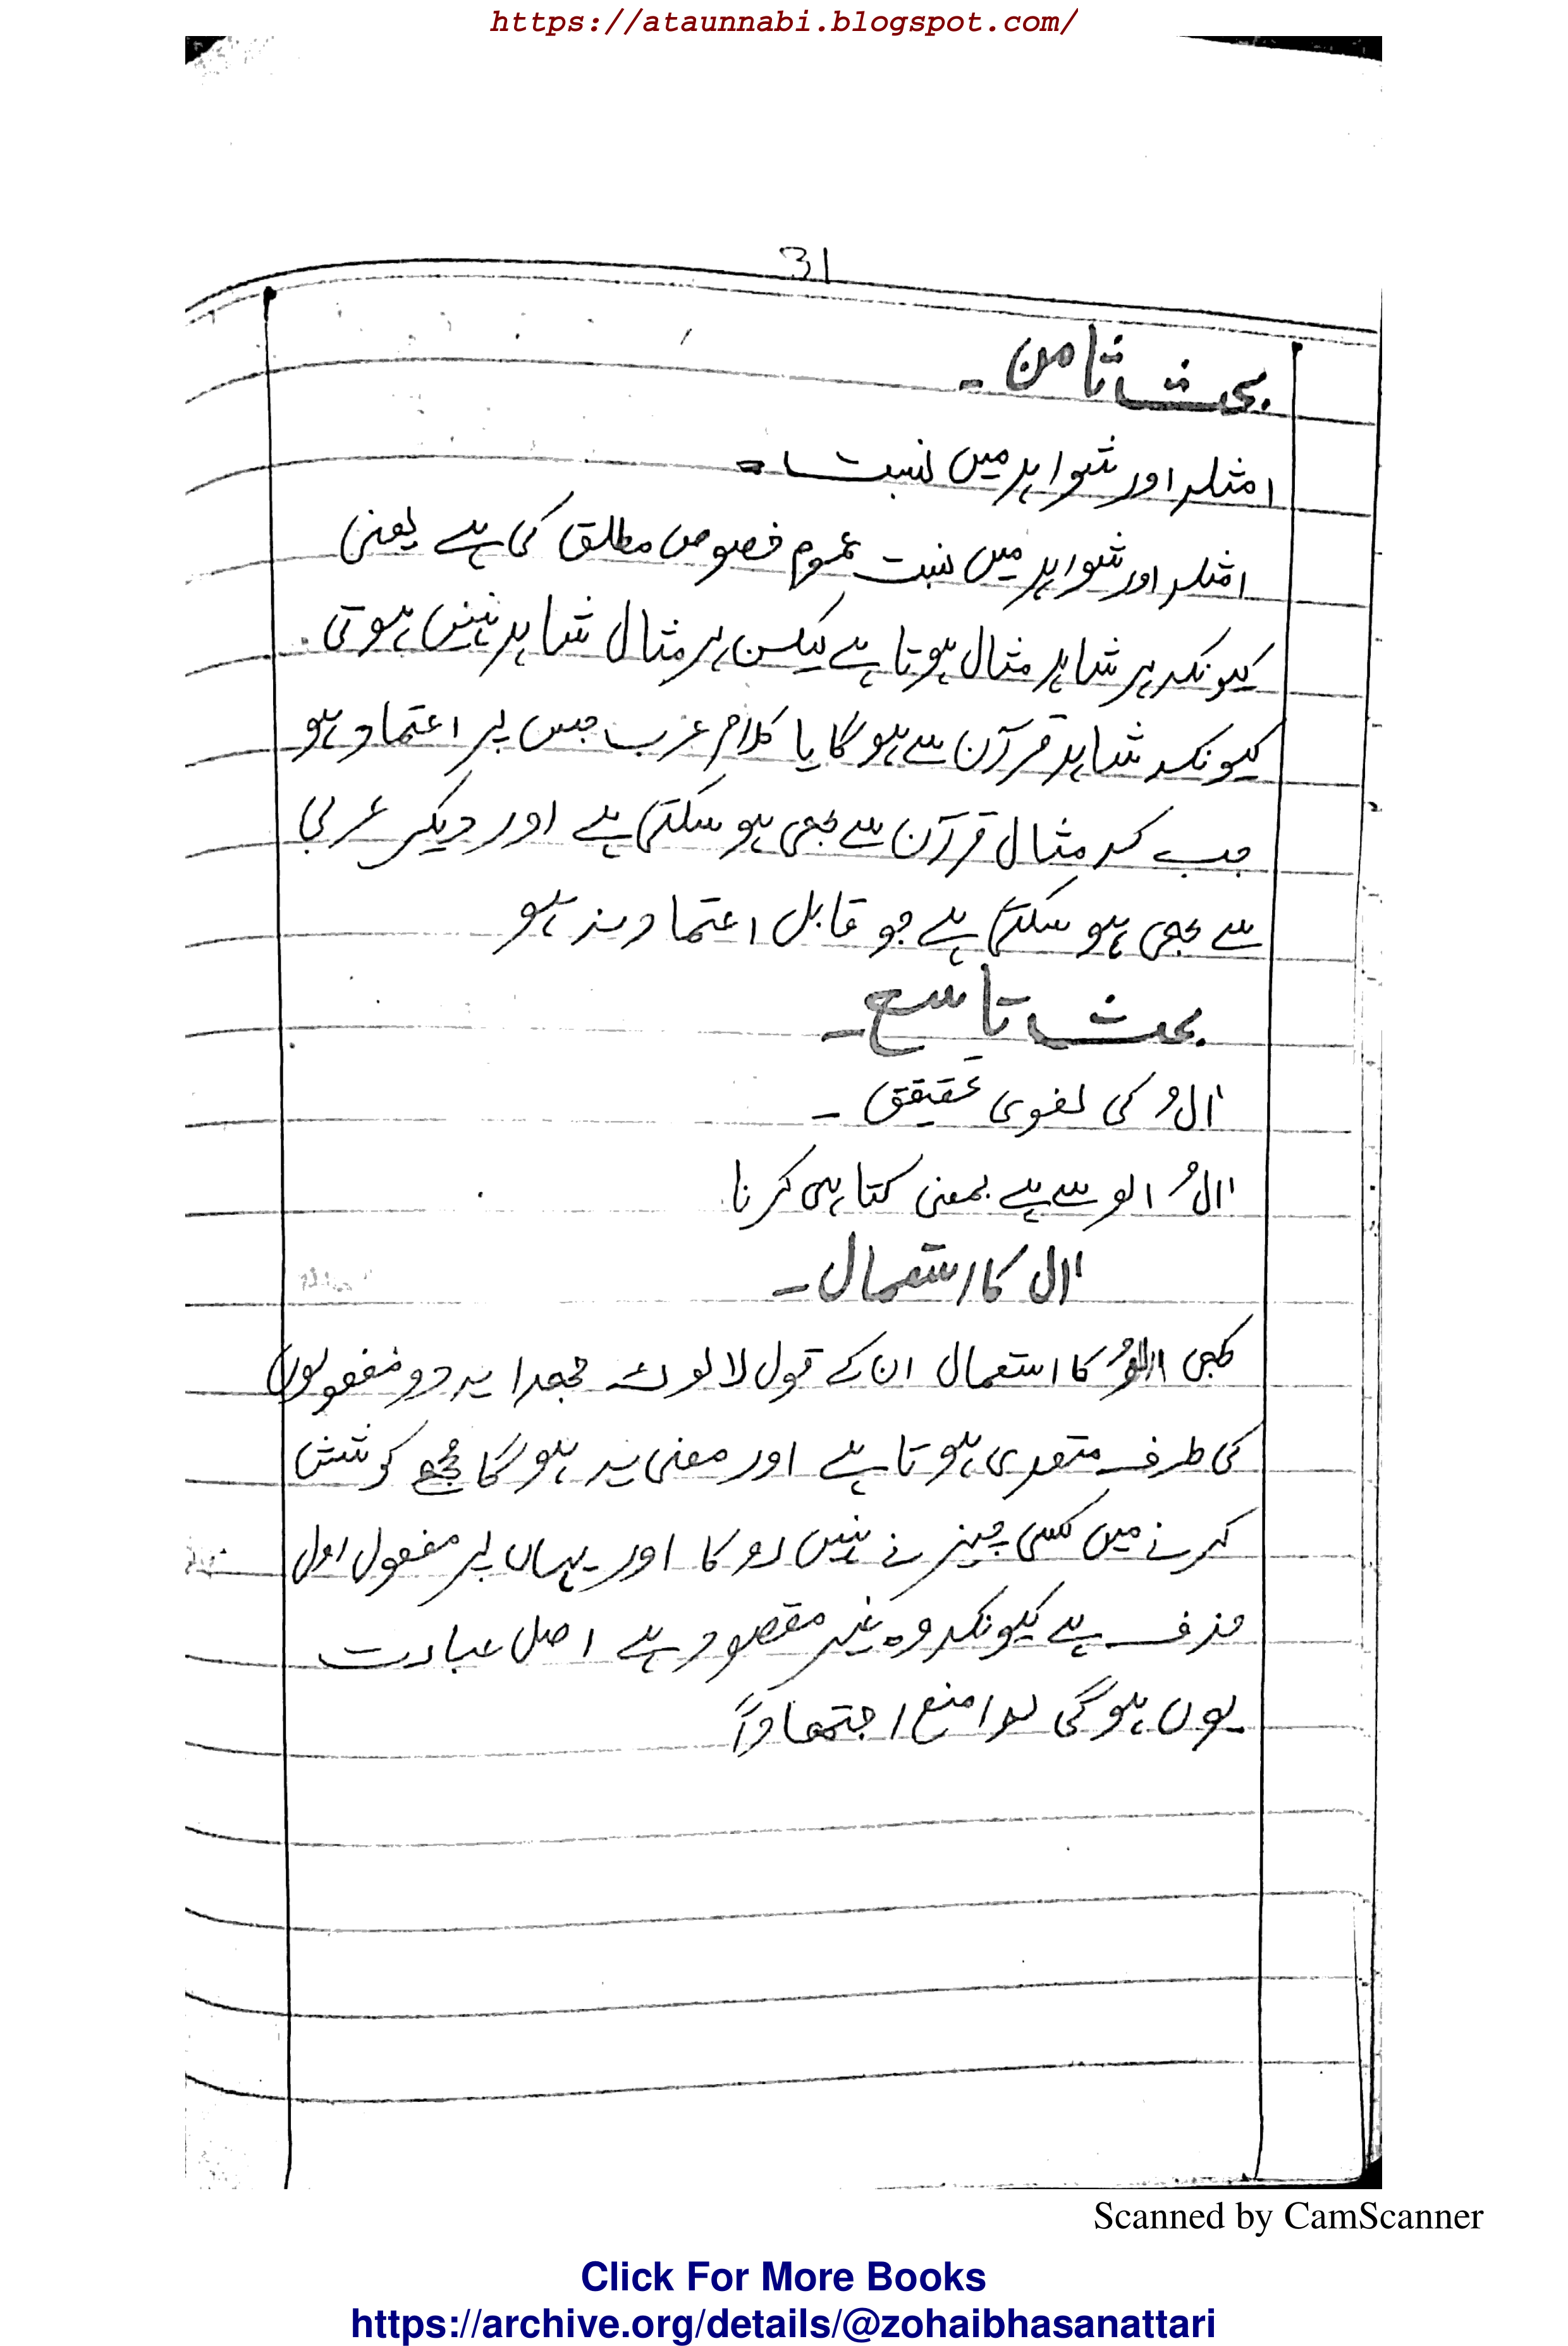 https://ataunnabi.blogspot.com/
31
بحث ثامن ۔
امثلہ اور شواہد میں نسبت ۔
امثلہ اور شواہد میں نسبت عموم خصوص مطلق کی ہے یعنی
کیونکہ ہر شاہد مثال ہوتا ہے لیکن ہر مثال شاہد نہیں ہوتی
کیونکہ شاہد قرآن سے ہوگا یا کلام عرب جس پر اعتماد ہو
جب کہ مثال قرآن سے بھی ہو سکتی ہے اور دیگر عربی
سے بھی ہو سکتی ہے جو قابل اعتماد نہ ہو
بحث تاسع ۔
الُ کی لغوی تحقیق ۔
الُ الو سے ہے بمعنی کتاہی کرنا
ال کا استعمال ۔
کبھی کا استعمال ان کے قول لا لوت جھدا یہ دو مفعولوں
کی طرف متعدی ہوتا ہے اور معنی یہ ہوگا مجھے کوشش
کرنے میں کسی چیز نے نہیں روکا اور یہاں پر مفعول اول
حذف ہے کیونکہ وہ غیر مقصود ہے اصل عبارت
یوں ہوگی لو امنع اجتھاداً
Scanned by CamScanner
Click For More Books
https://archive.org/details/@zohaibhasanattari